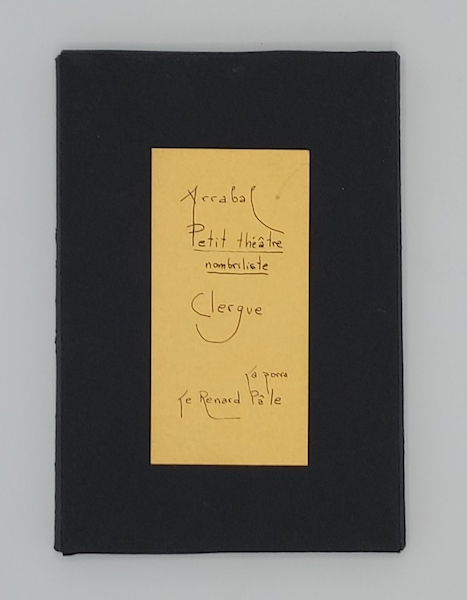 Arrabal
Petit théâtre
nombriliste
Clergue
la porra
Le Renard Pâle